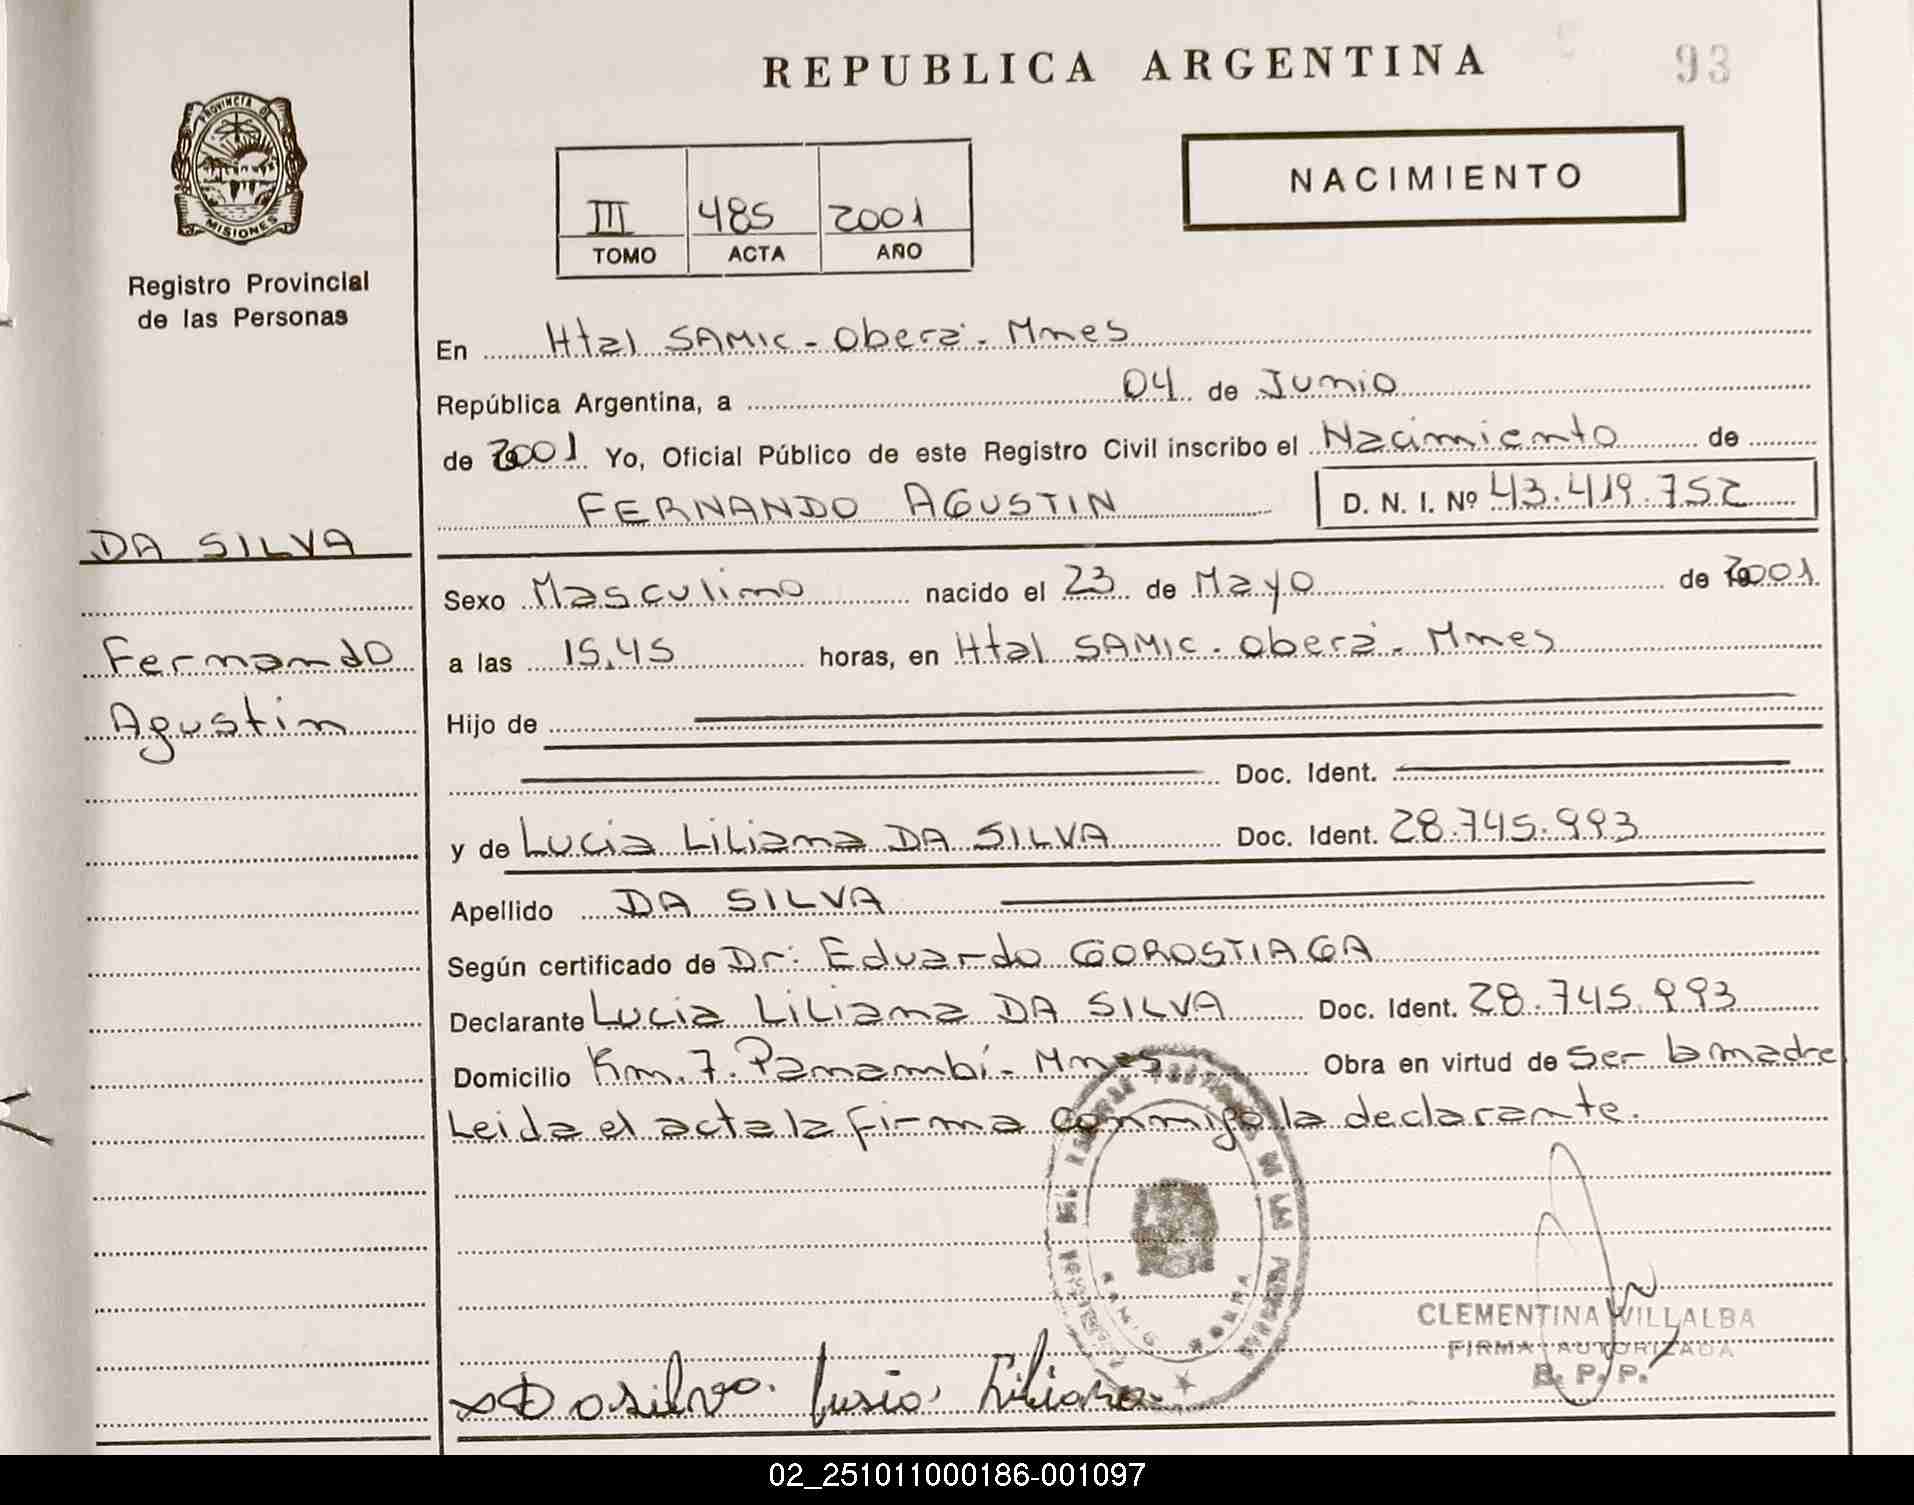 REPUBLICA ARGENTINA
93
PROVINCIA DE
MISIONES
Registro Provincial
de las Personas
III 485 2001
TOMO ACTA AÑO
NACIMIENTO
En Htal SAMIC - Oberá - Mnes
República Argentina, a 04 de Junio
de 2001 Yo, Oficial Público de este Registro Civil inscribo el Nacimiento de
FERNANDO AGUSTIN D. N. I. Nº 43.419.752
DA SILVA
Fernando
Agustin
Sexo Masculino nacido el 23 de Mayo de 2001
a las 15,45 horas, en Htal SAMIC - Oberá - Mnes
Hijo de
Doc. Ident.
y de Lucia Liliana DA SILVA Doc. Ident. 28.745.993
Apellido DA SILVA
Según certificado de Dr: Eduardo GOROSTIAGA
Declarante Lucia Liliana DA SILVA Doc. Ident. 28.745.993
Domicilio Km. 7. Panambí - Mnes Obra en virtud de Ser la madre
Leida el acta la firma conmigo la declarante.
CLEMENTINA VILLALBA
FIRMA AUTORIZADA
R. P. P.
Da silva. Lusia Liliana
02_251011000186-001097